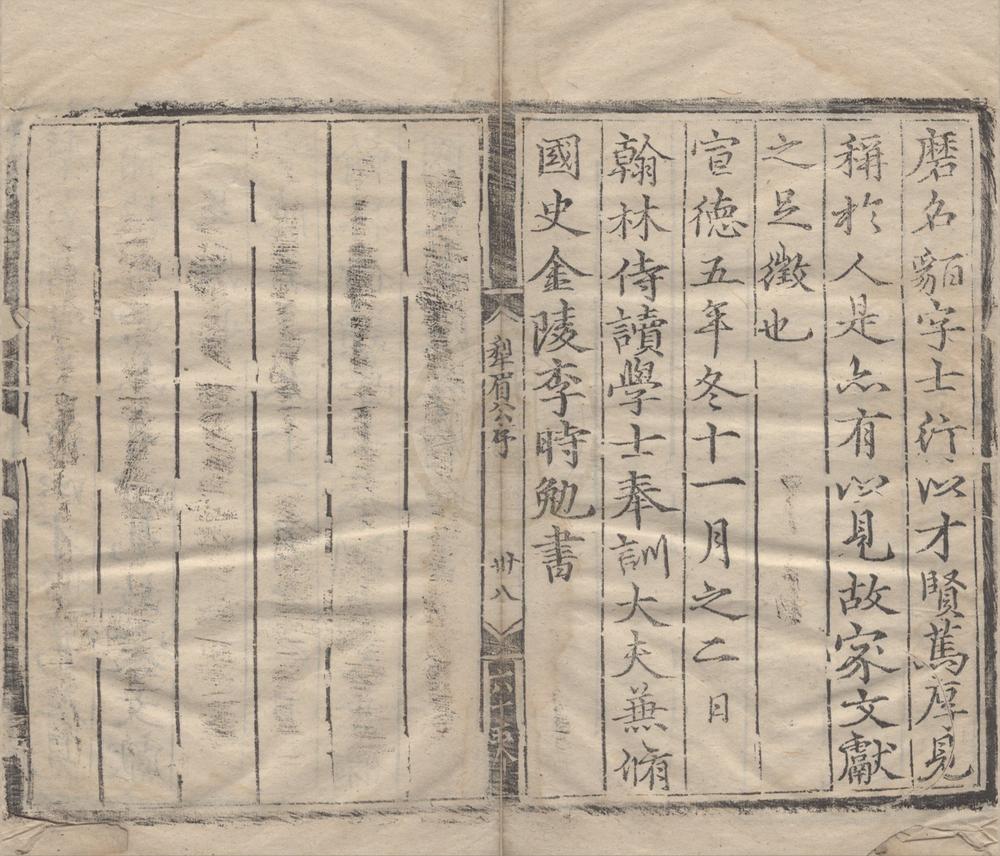 磨名貌字士行以才賢篤厚見
稱於人是亦有以見故家文獻
之足徵也
宣德五年冬十一月之二日
翰林侍讀學士奉訓大夫兼脩
國史金陵李時勉書
犂眉公序
卅八